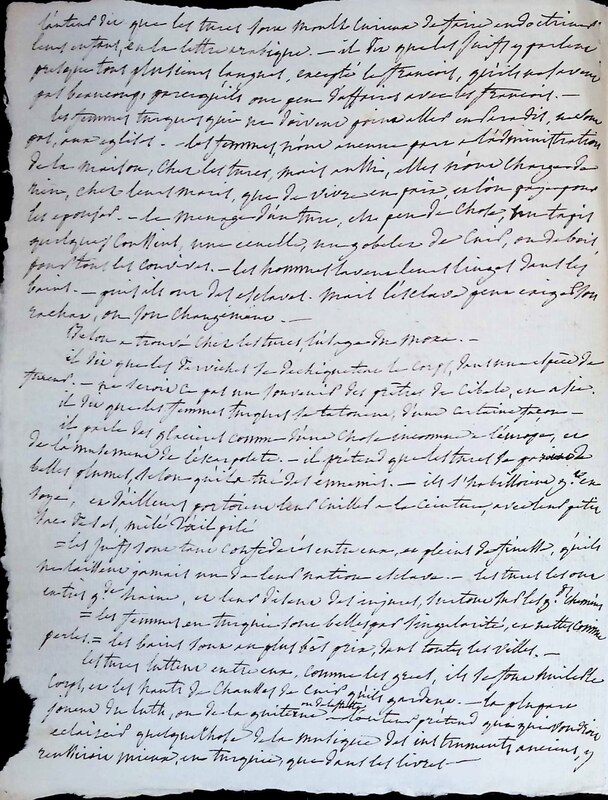 l'auteur dit que les turcs sont moult curieux de faire endoctriner
leurs enfans, en la lettre arabique. — il dit que les juifs y parlent
presque tous plusieurs langues, excepté le francois, qu'ils ne savent
pas beaucoup, parcequ'ils ont peu d'affaires avec les francois. —
les femmes turques qui ne doivent point aller en paradis, ne vont
pas, aux eglises. — les femmes, n'ont aucune part a l'administration
de la maison, chez les turcs, mais aussi, elles n'ont charge de
rien, chez leurs maris, que de vivre en paix, et l'on paye pour
les epouser. — le menage d'un turc, est peu de chose, un tapis
quelques coussins, une écuelle, un gobelet de cuir, ou de bois,
pour tous les convives. — les hommes lavent leurs linges dans les
bains. — ils ont des esclaves. mais l'esclave peut exiger son
rachat, ou son changement. —
Belon a trouvé chez les turcs, l'usage du moxa. —
il dit que les derviches se dechiquetent le corps, dans une espèce de
fureur. — ne seroit ce pas un souvenir des prêtres de Cibele, en asie.
il dit que les femmes turques se tatouent, d'une certaine façon —
il parle des glacieres comme d'une chose inconnue a l'europe, et
de l'amusement de l'escarpolete. — il pretend que les turcs se parent de
belles plumes, selon qu'ils a tué des ennemis. — ils s'habilloient en
soye, et d'ailleurs portoient leurs cuilles a la ceinture, avec leur petit
sac de sel, mélé d'ail pilé
= les juifs sont tant confédérés entre eux, et pleins de finesse, qu'ils
ne laissent jamais un de leur nation esclave. — les turcs les ont
en très gde haine, et leur disent des injures, surtout sur les gds chemins
= les femmes en turquie sont belles par singularité, et nettes comme
perles. = les bains sont au plus bas prix, dans toutes les villes. —
les turcs luttent entre eux, comme les grecs, ils se font huiler le
corps, et les hauts de chausses de cuir, qu'ils gardent. — la plupart
jouent du luth, ou de la guiterne — l'auteur pretend que qui voudroit
eclaircir quelquechose de la musique des instruments anciens, y
reussiroit mieux, en turquie, que dans les livres —